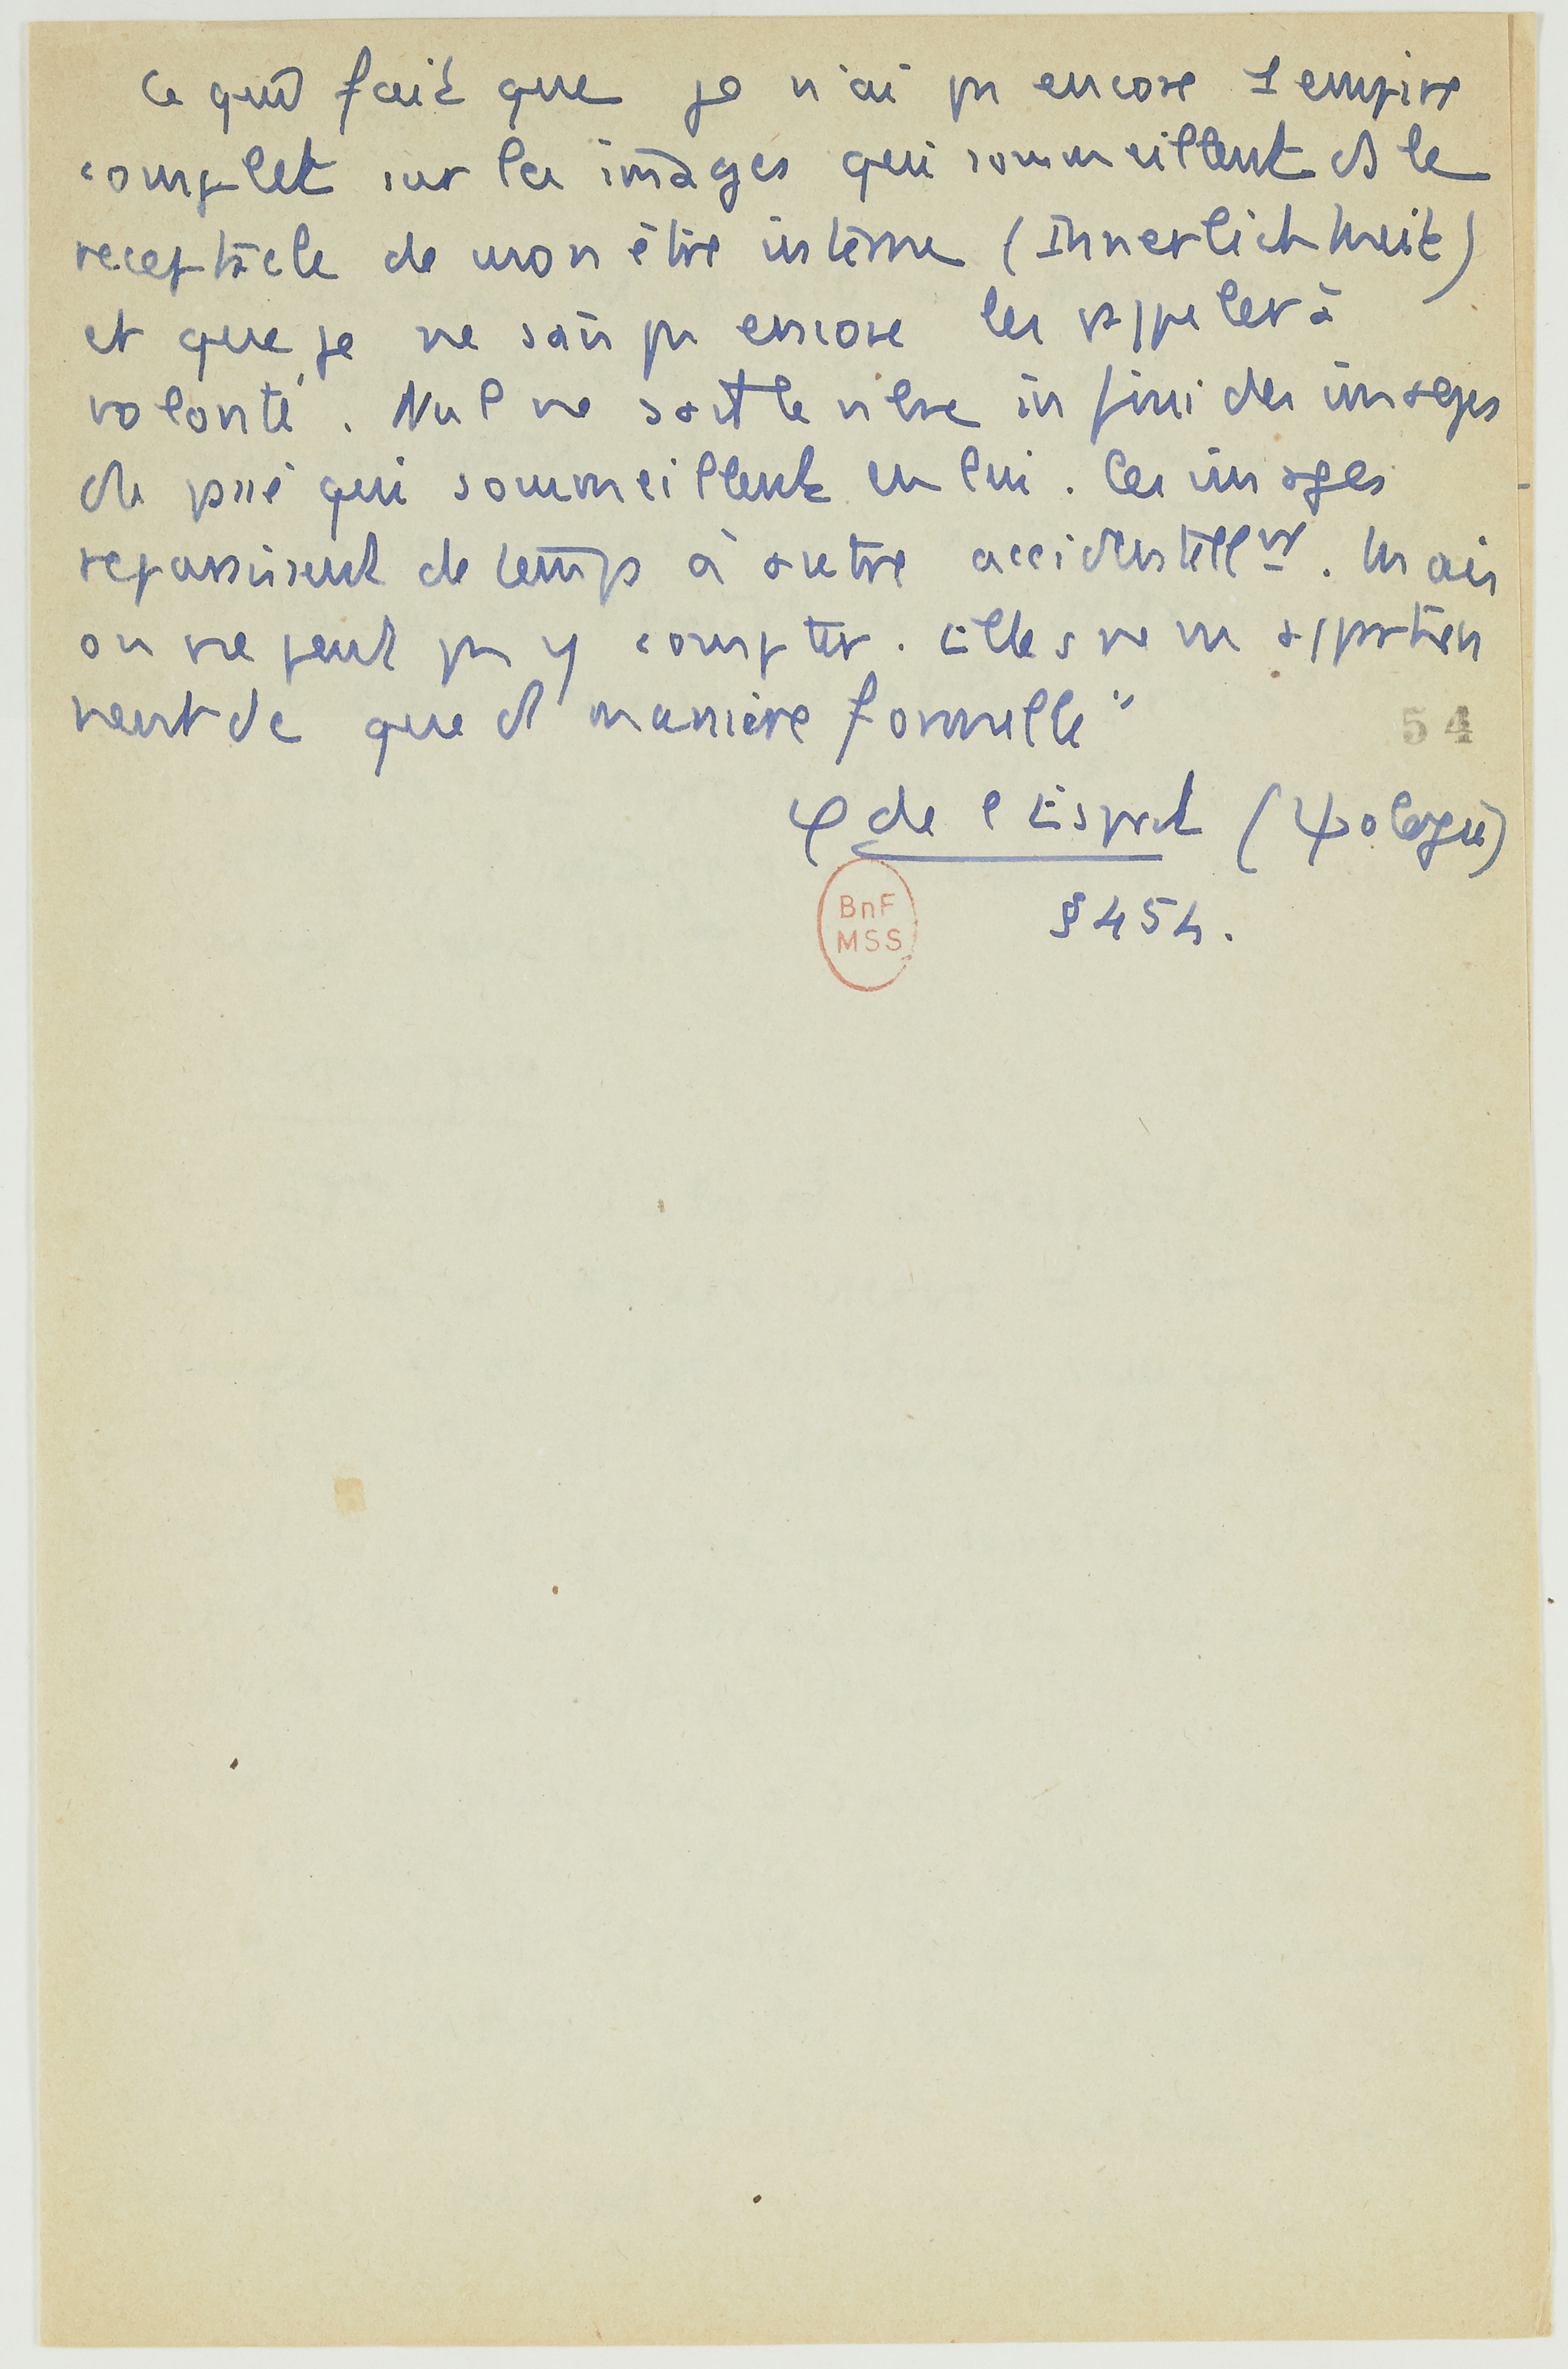 Ce qui fait que je n'ai pas encore l'empire
complet sur les images qui sommeillent ds le
receptacle de mon être interne (Innerlichkeit)
et que je ne sais pas encore les rappeler à
volonté. Nul ne sait le nbre infini des images
du passé qui sommeillent en lui. Ces images
reparaissent de temps à autre accidentellnt. Mais
on ne peut pas y compter. Elles ne m appartien
nent de que d manière formelle"
54
φ de l Esprit (ψologie)
BnF
MSS
§ 454.